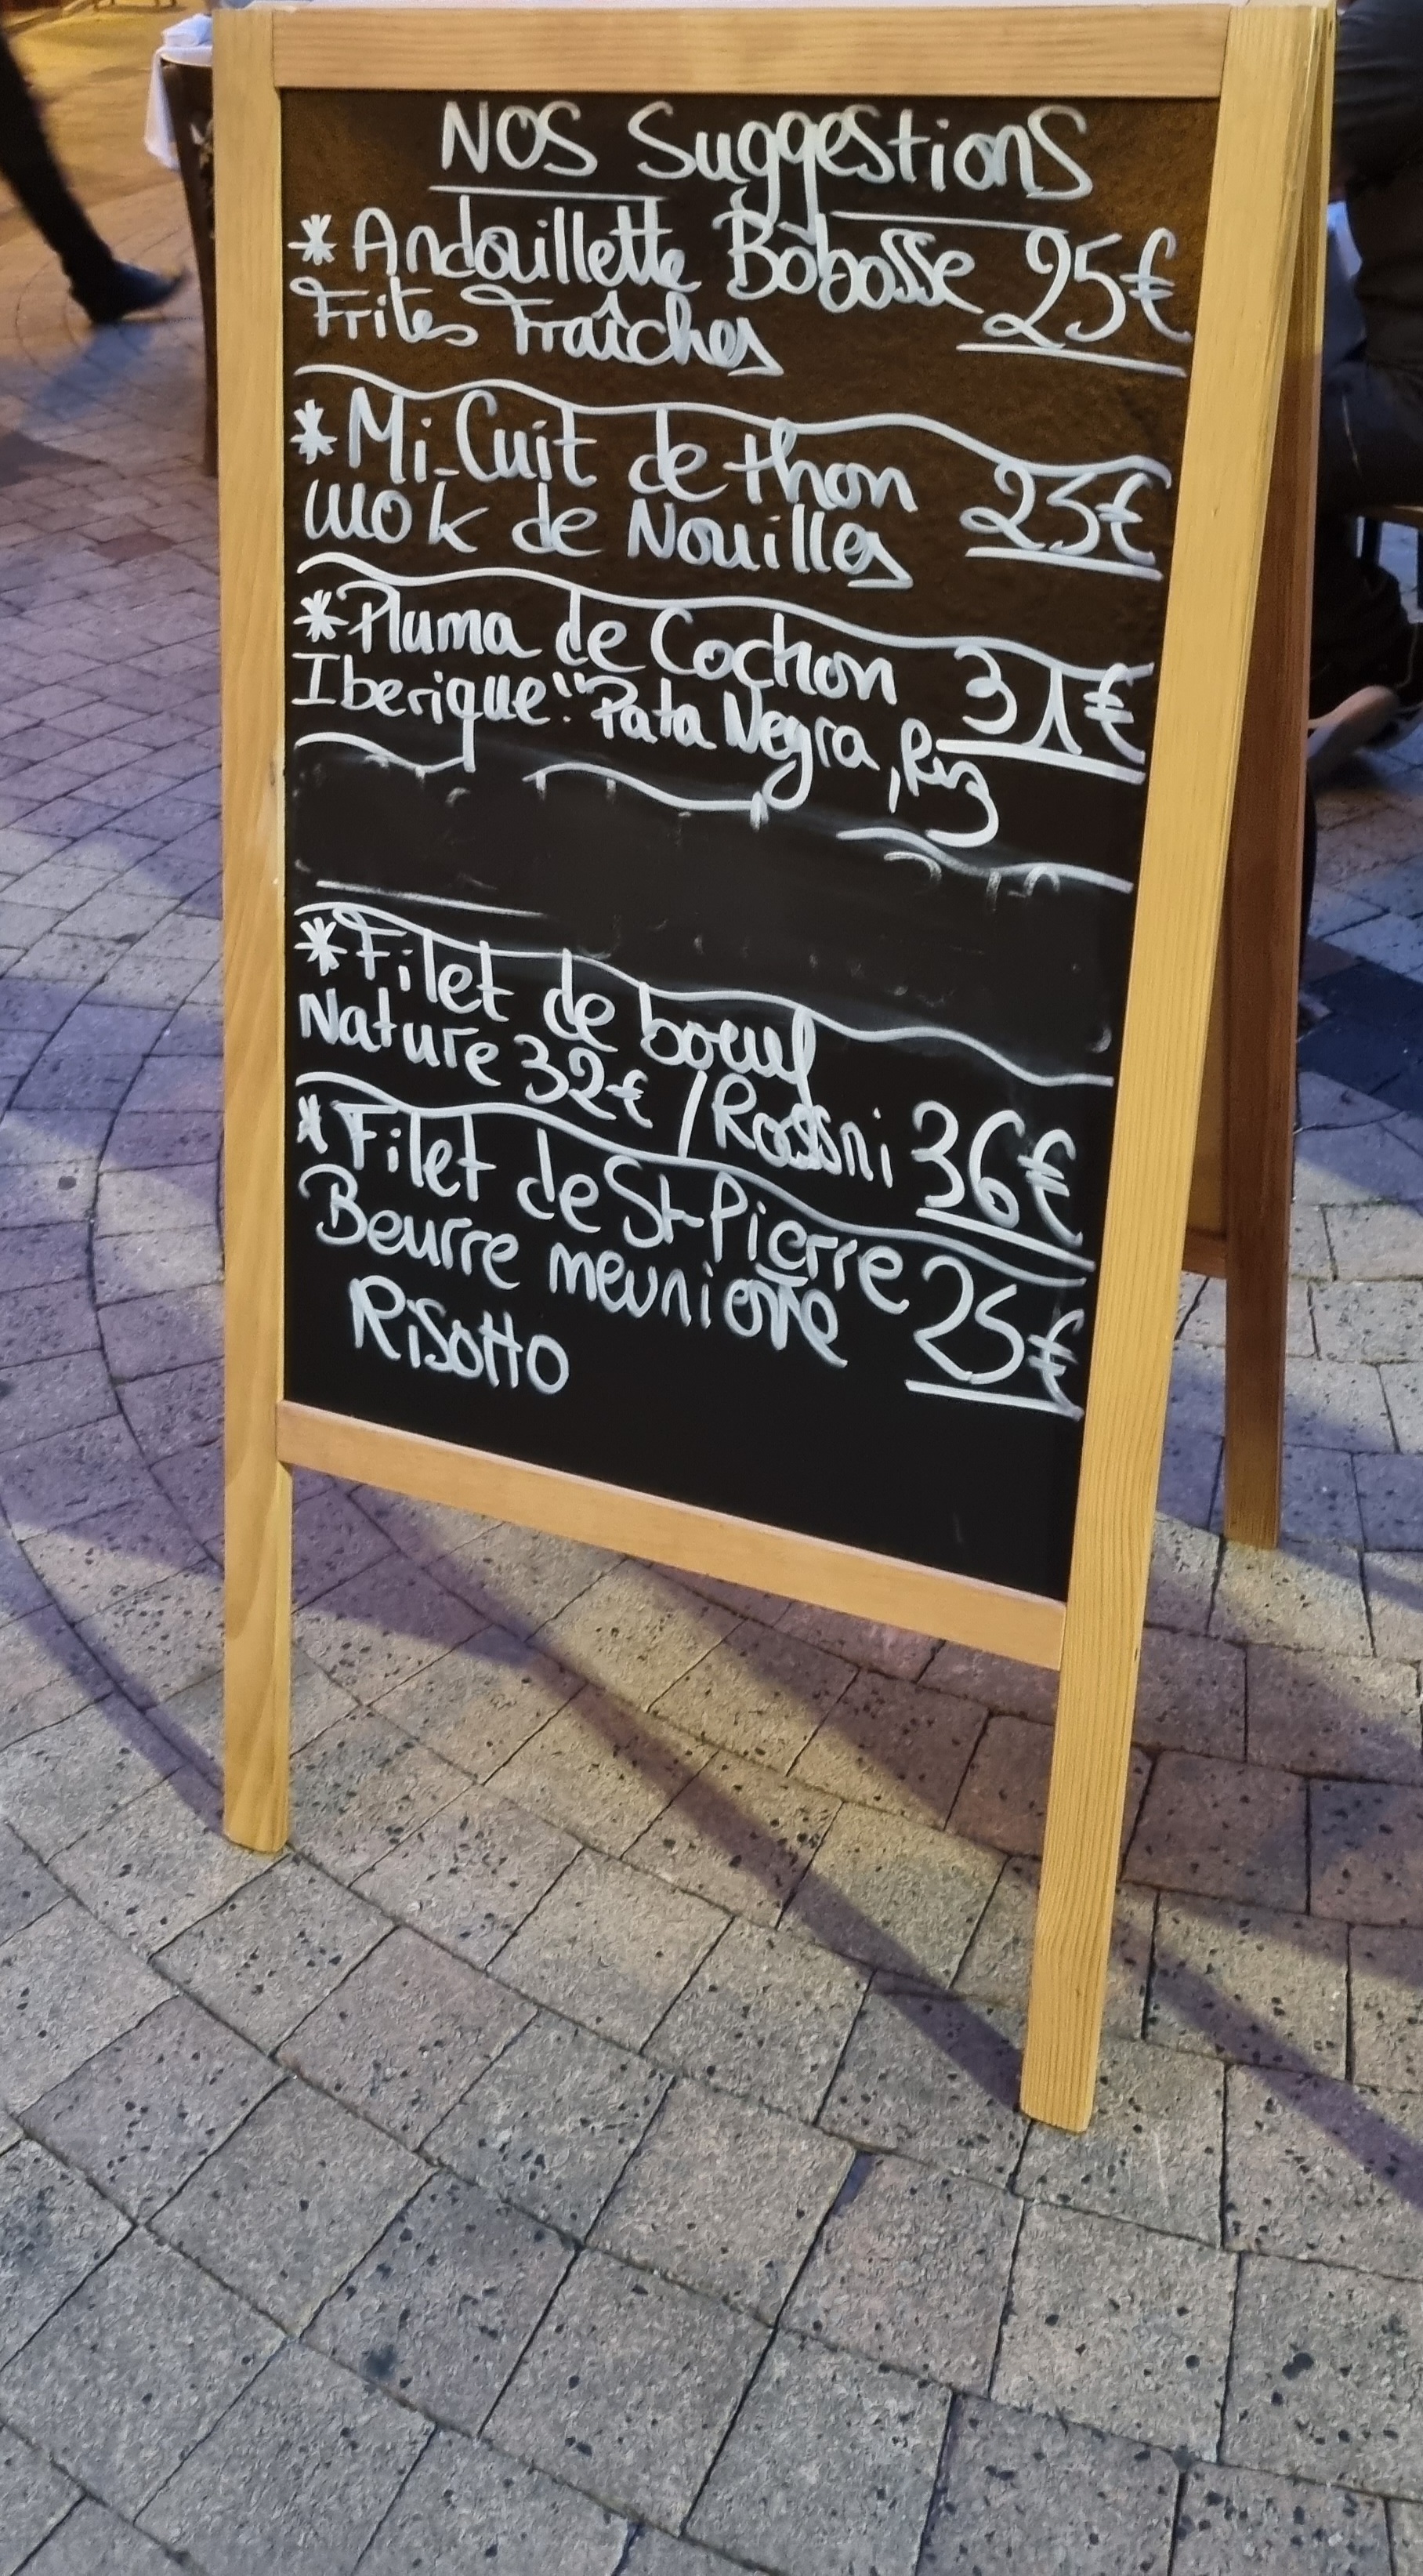 NOS Suggestions
*Andouillette Bobosse 25€
Frites Fraîches
*Mi-Cuit de thon
Wok de Nouilles 25€
*Pluma de Cochon 31€
Iberique "Pata Negra, Riz
*Filet de boeuf
Nature 32€ / Rossini 36€
*Filet de St-Pierre
Beurre meunière 25€
Risotto